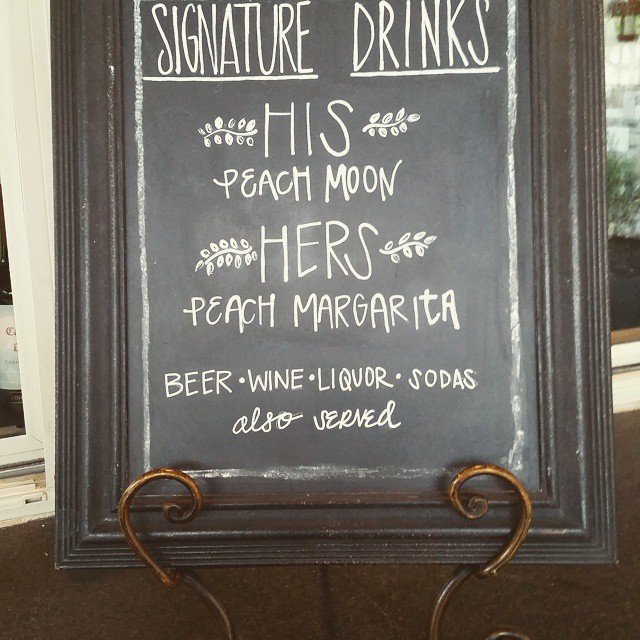 SIGNATURE DRINKS
HIS
PEACH MOON
HERS
PEACH MARGARITA
BEER • WINE • LIQUOR • SODAS
also SERVED